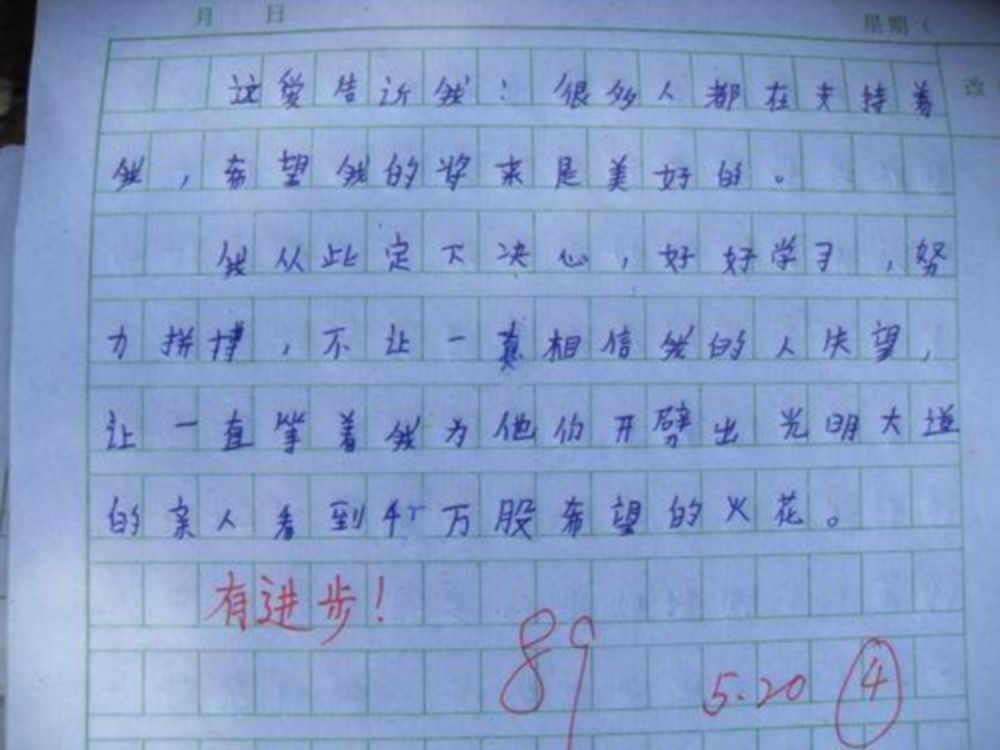 月 日 星期（
这爱告诉我：很多人都在支持着 改
我，希望我的将来是美好的。
我从此定下决心，好好学习，努
力拼搏，不让一直相信我的人失望，
让一直等着我为他们开劈出光明大道
的亲人看到千万股希望的火花。
有进步！
89
5.20 ④